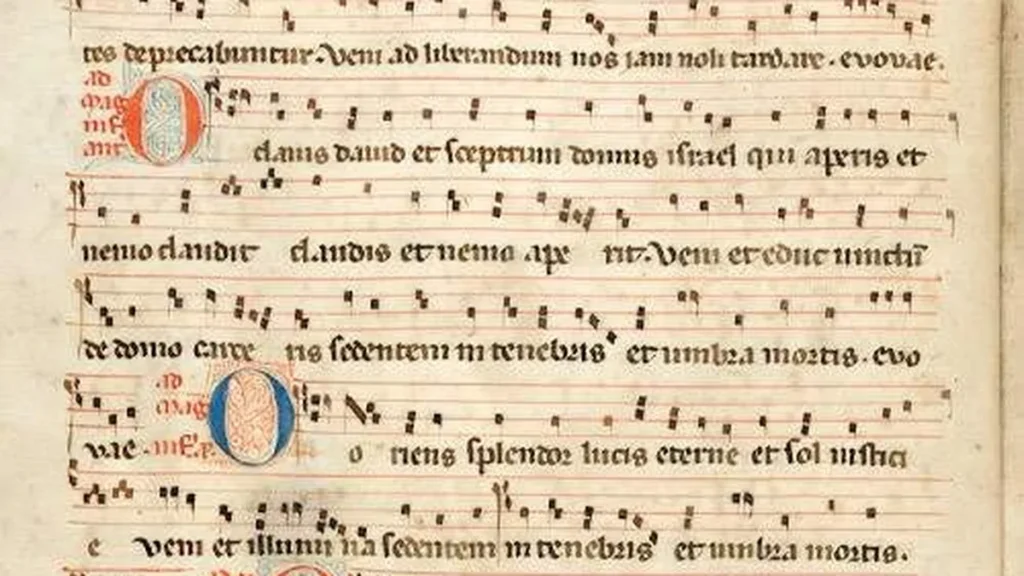 tes deprecabuntur. Veni ad liberandum nos iam noli tardare. evovae.
ad
mag
O clauis dauid et sceptrum domus israel qui aperis et
nemo claudit claudis et nemo ape rit. Veni et educ uinctū
de domo carce ris sedentem in tenebris et umbra mortis. evo
ad
mag
vae. O o riens splendor lucis eterne et sol iustici
e veni et illumi na sedentem in tenebris et umbra mortis.